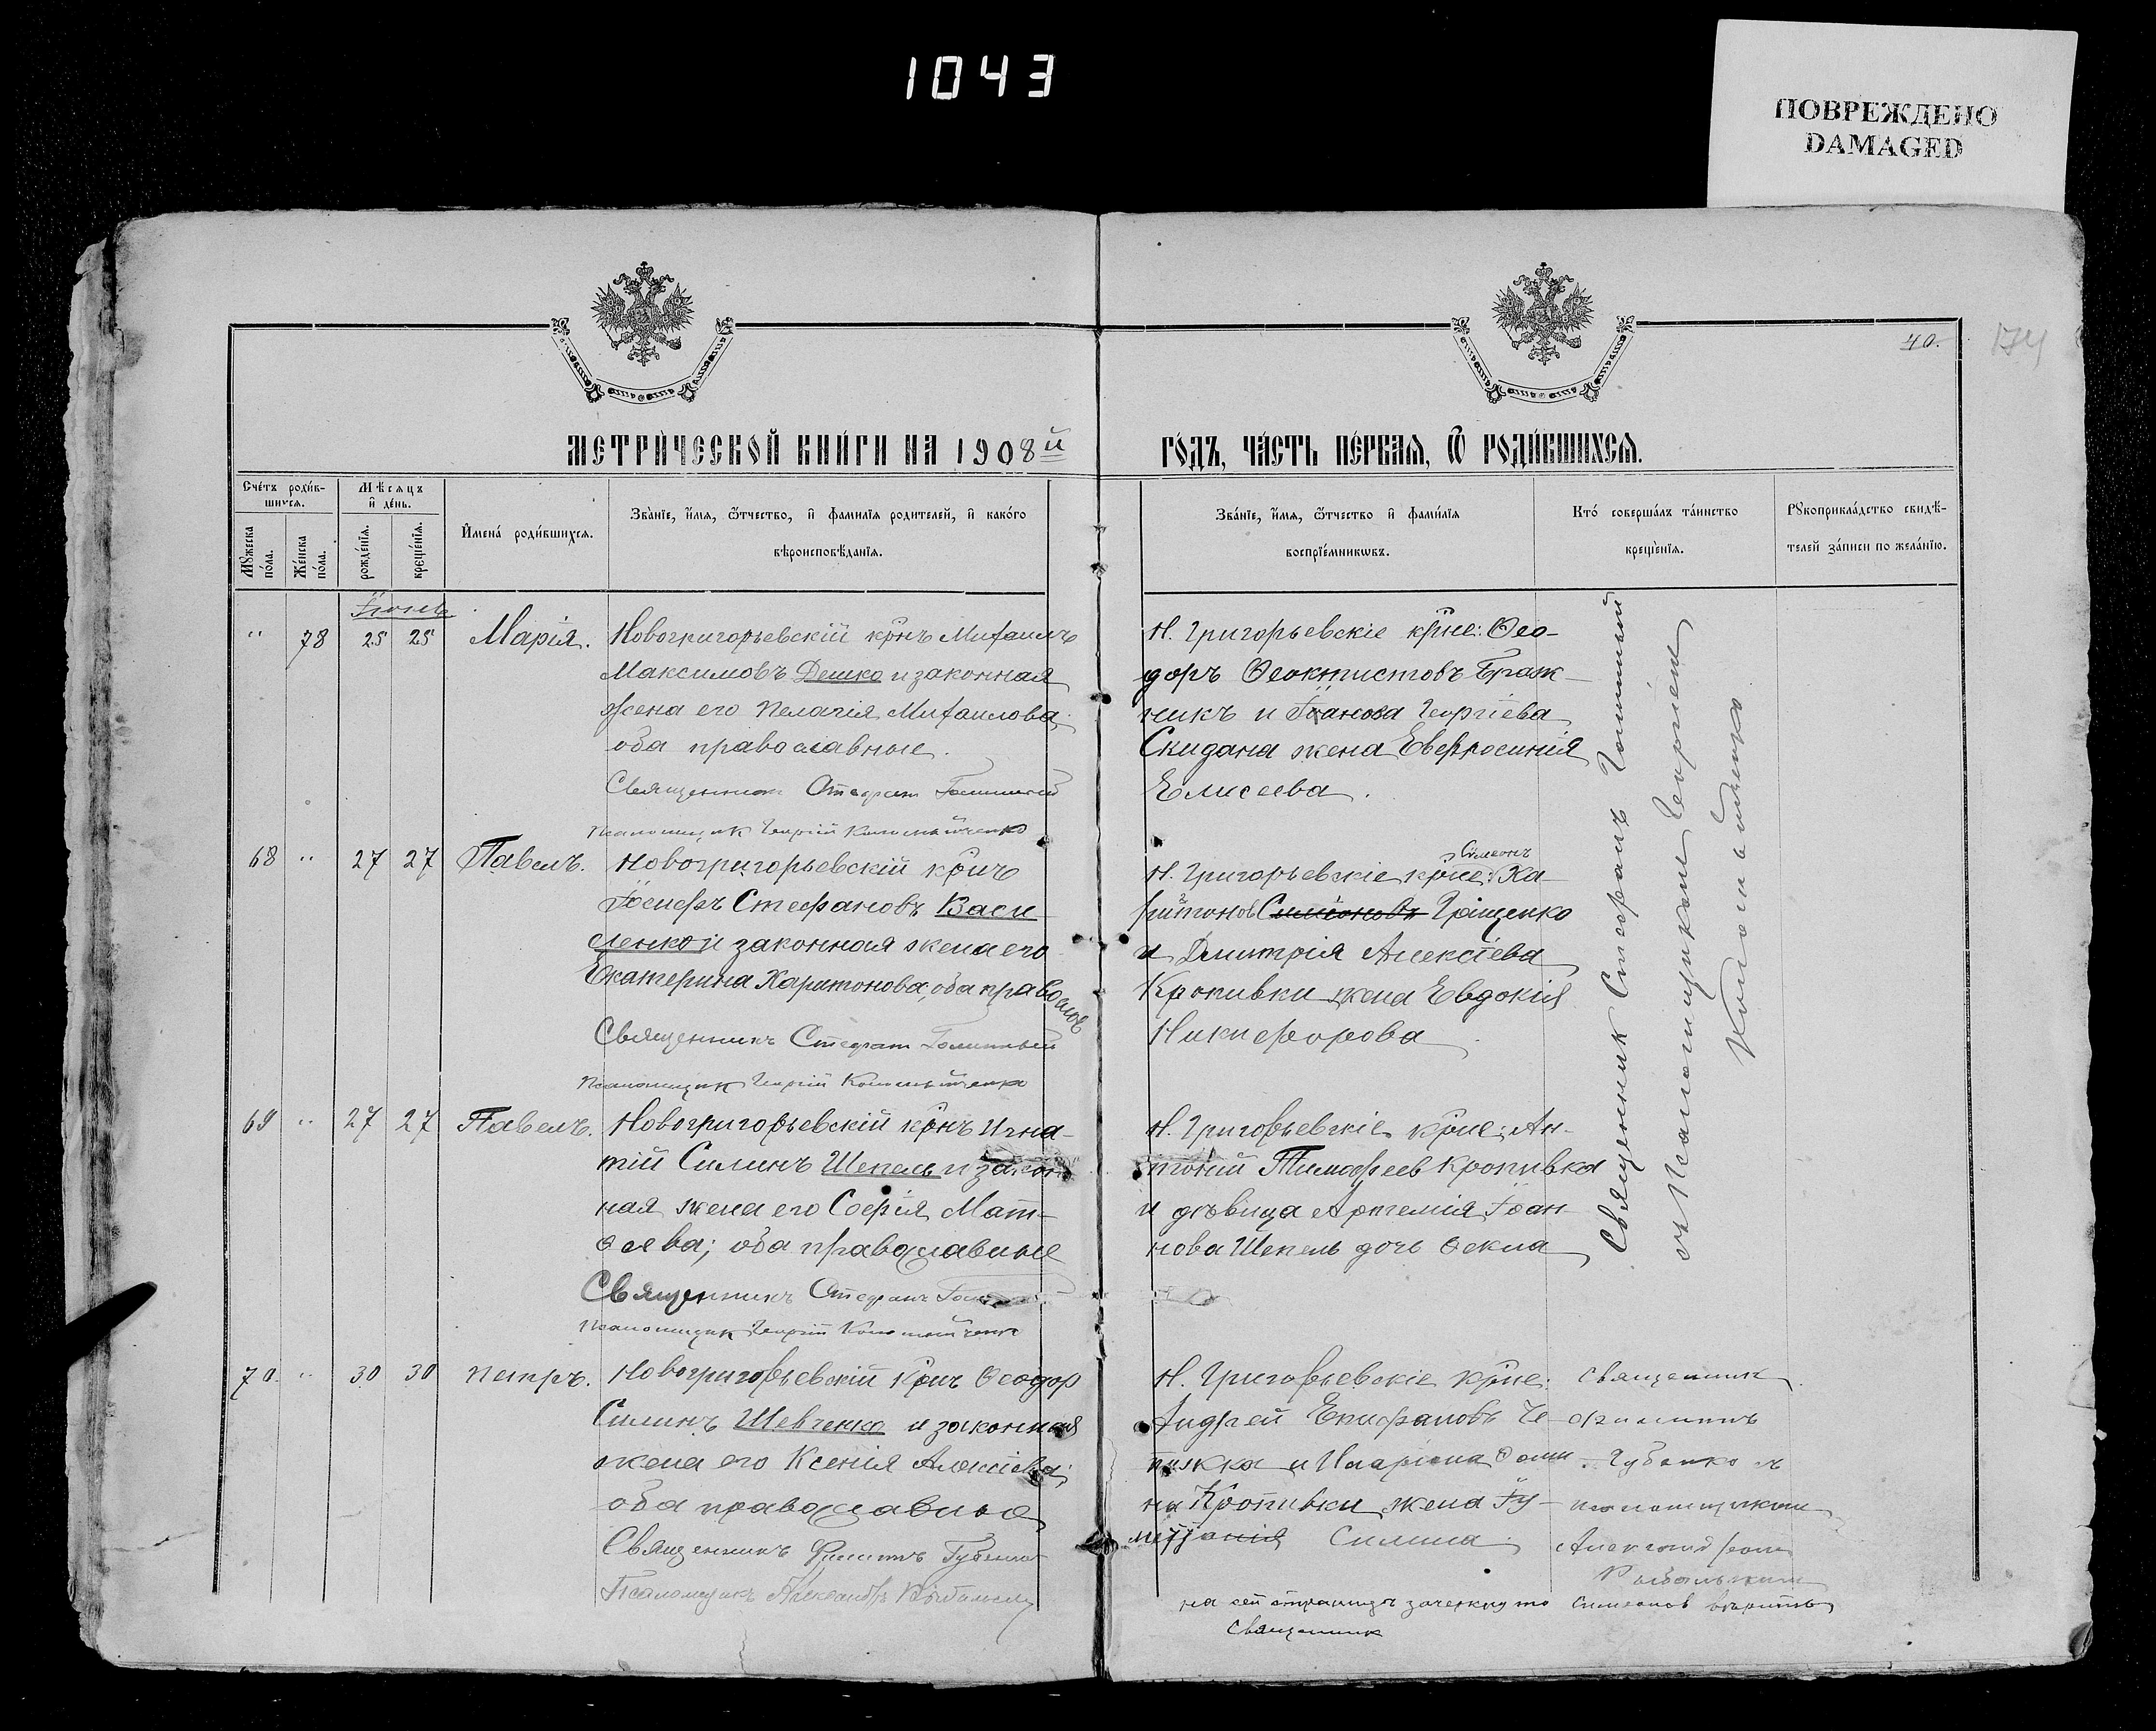 1043
ПОВРЕЖДЕНО
DAMAGED
40.
174
МЕТРИ́ЧЕСКОЙ КНИ́ГИ НА 1908й
ГО́ДЪ, ЧА́СТЬ ПЕ́РВАЯ, Ѿ РОДИ́ВШИХСЯ.
Сче́тъ роди́в-
шихся.
Мѣсяцъ
и де́нь.
Му́жеска по́ла.
Же́нска по́ла.
рожде́нїя.
креще́нїя.
Имена́ роди́вшихся.
Зва́нїе, и́мя, ѻ́тчество, и фами́лїя родителей, и како́го
вѣроисповѣ́данїя.
Зва́нїе, и́мя, ѻ́тчество и фами́лїя
воспрїе́мникѡвъ.
Кто́ соверша́лъ та́инство
креще́нїя.
Рукоприкла́дство свидѣ́-
телей за́писи по жела́нїю.
Іюнь
" 78 25 25 Марія. Новогригорьевскій крнъ Михаилъ
Максимовъ Дешко и законная
жена его Пелагія Михаилова;
оба православные.
Священникъ Стефанъ
Псаломщик Георгій Коломыйченко
Н. Григорьевскіе крне: Ѳео-
доръ Ѳеоктистовъ Браж-
никъ и Іоанова Георгіева
Скидана жена Евфросинія
Елисеева.
68 " 27 27 Павелъ. Новогригорьевскій крнъ
Іосифъ Стефановъ Васи-
ленко и законная жена его
Екатерина Харитонова, оба православ
Священникъ Стефанъ
Псаломщик Георгій Коломыйченко
Симеонъ
Н. Григорьевскіе крне: Ха-
ритонов Симеоновъ Грищенко
и Димитрія Алексіева
Кропивки жена Евдокія
Никифорова
69 " 27 27 Павелъ. Новогригорьевскій крнъ Игна-
тій Силинъ Шепель и закон-
ная жена его Софія Мат-
ѳеева; оба православные
Священникъ Стефанъ
Псаломщик Георгій Коломыйченко
Н. Григорьевскіе крне: Ан-
тоній Тимофеев Кропивка
и дѣвица Артемія Іоан-
нова Шепель дочь Ѳекла
Священник Стефанъ
съ Псаломщикомъ Георгіемъ
Коломыйченко
70. " 30 30 Петръ. Новогригорьевскій крнъ Ѳеодор
Силинъ Шевченко и законная
жена его Ксенія Алексіева;
оба православные
Священникъ Филиппъ Губенко
Псаломщикъ Александръ
Н. Григорьевскіе крне:
Андрей Епифановъ Че-
пижка и Иларіона Ѳоми-
на Кропивки жена Іу-
ліанія Силина.
Священник
Филиппъ
Губенко съ
псаломщиком
Александром
на сей страницѣ зачеркнуто Симеонов вѣрить
Священник